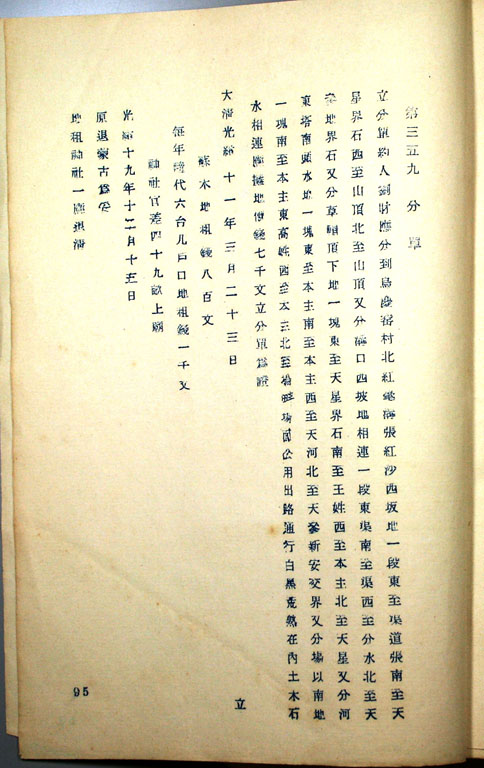 第三五九 分單
立分單約人劉財應分到烏 村北紅 溝張紅沙西坂地一段東至渠道張南至天
星界石西至山頂北至山頂又分溝口西坡地相連一段東渠南至渠西至分水北至天
地界石又分草 頂下地一塊東至天星界石南至王姓西至本主北至天星又分河
東塔南頭水地一塊東至本主南至本主西至天河北至天 新安交界又分場以南地
一塊南至本主東高姓西至本主北至 公用出路通行白黑荒熟在內土木石
水相連應 地 錢七千文立分單為證
大清光緒十一年三月二十三日
蘇木地租錢八百文
每年 代六台几戶口地租錢一千文
神社官差四十九畝上願
光緒十九年十二月十五日
原退蒙古
地租神社一應退清
立
95